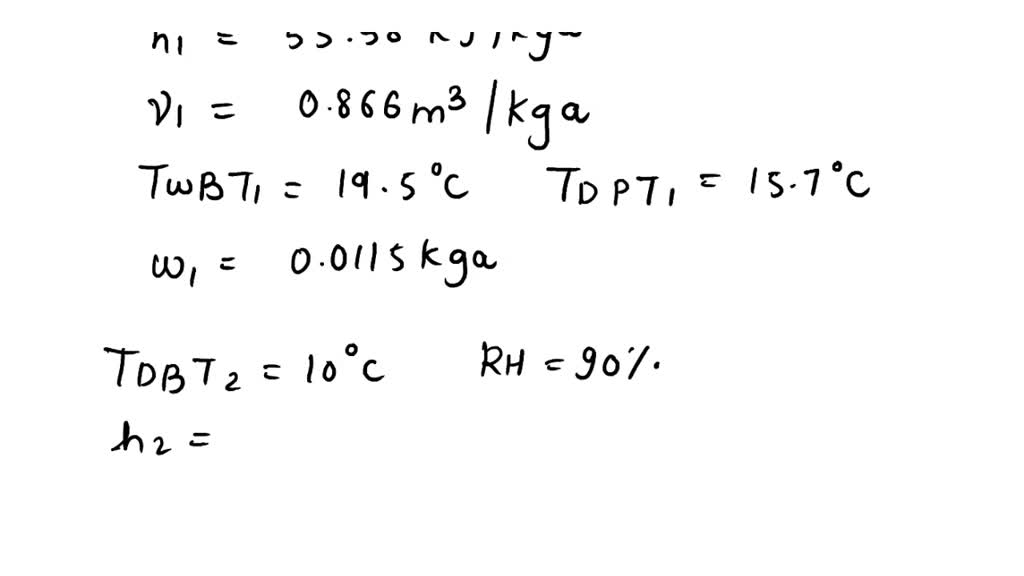 ν1 = 0.866 m³/kga
TWBT1 = 19.5°C TDPT1 = 15.7°C
ω1 = 0.0115 kga
TDBT2 = 10°C RH = 90%.
h2 =